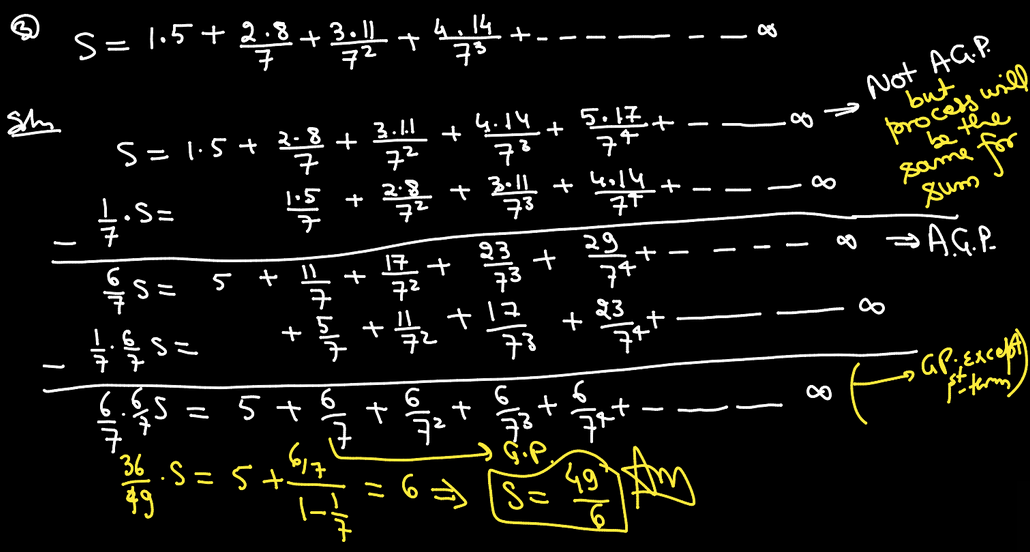 ③ S = 1.5 + 2.8/7 + 3.11/7² + 4.14/7³ + - - - - - - - ∞
Soln
S = 1.5 + 2.8/7 + 3.11/7² + 4.14/7³ + 5.17/7⁴ + - - - ∞ → Not A.G.P. but process will be the same for sum
- 1/7 . S = 1.5/7 + 2.8/7² + 3.11/7³ + 4.14/7⁴ + - - - ∞
6/7 S = 5 + 11/7 + 17/7² + 23/7³ + 29/7⁴ + - - - - - ∞ ⇒ A.G.P.
- 1/7 . 6/7 S = + 5/7 + 11/7² + 17/7³ + 23/7⁴ + - - - ∞
6/7 . 6/7 S = 5 + 6/7 + 6/7² + 6/7³ + 6/7⁴ + - - - - ∞ → G.P. except 1st term
→ G.P.
36/49 . S = 5 + (6/7)/(1 - 1/7) = 6 ⇒ S = 49/6 Ans